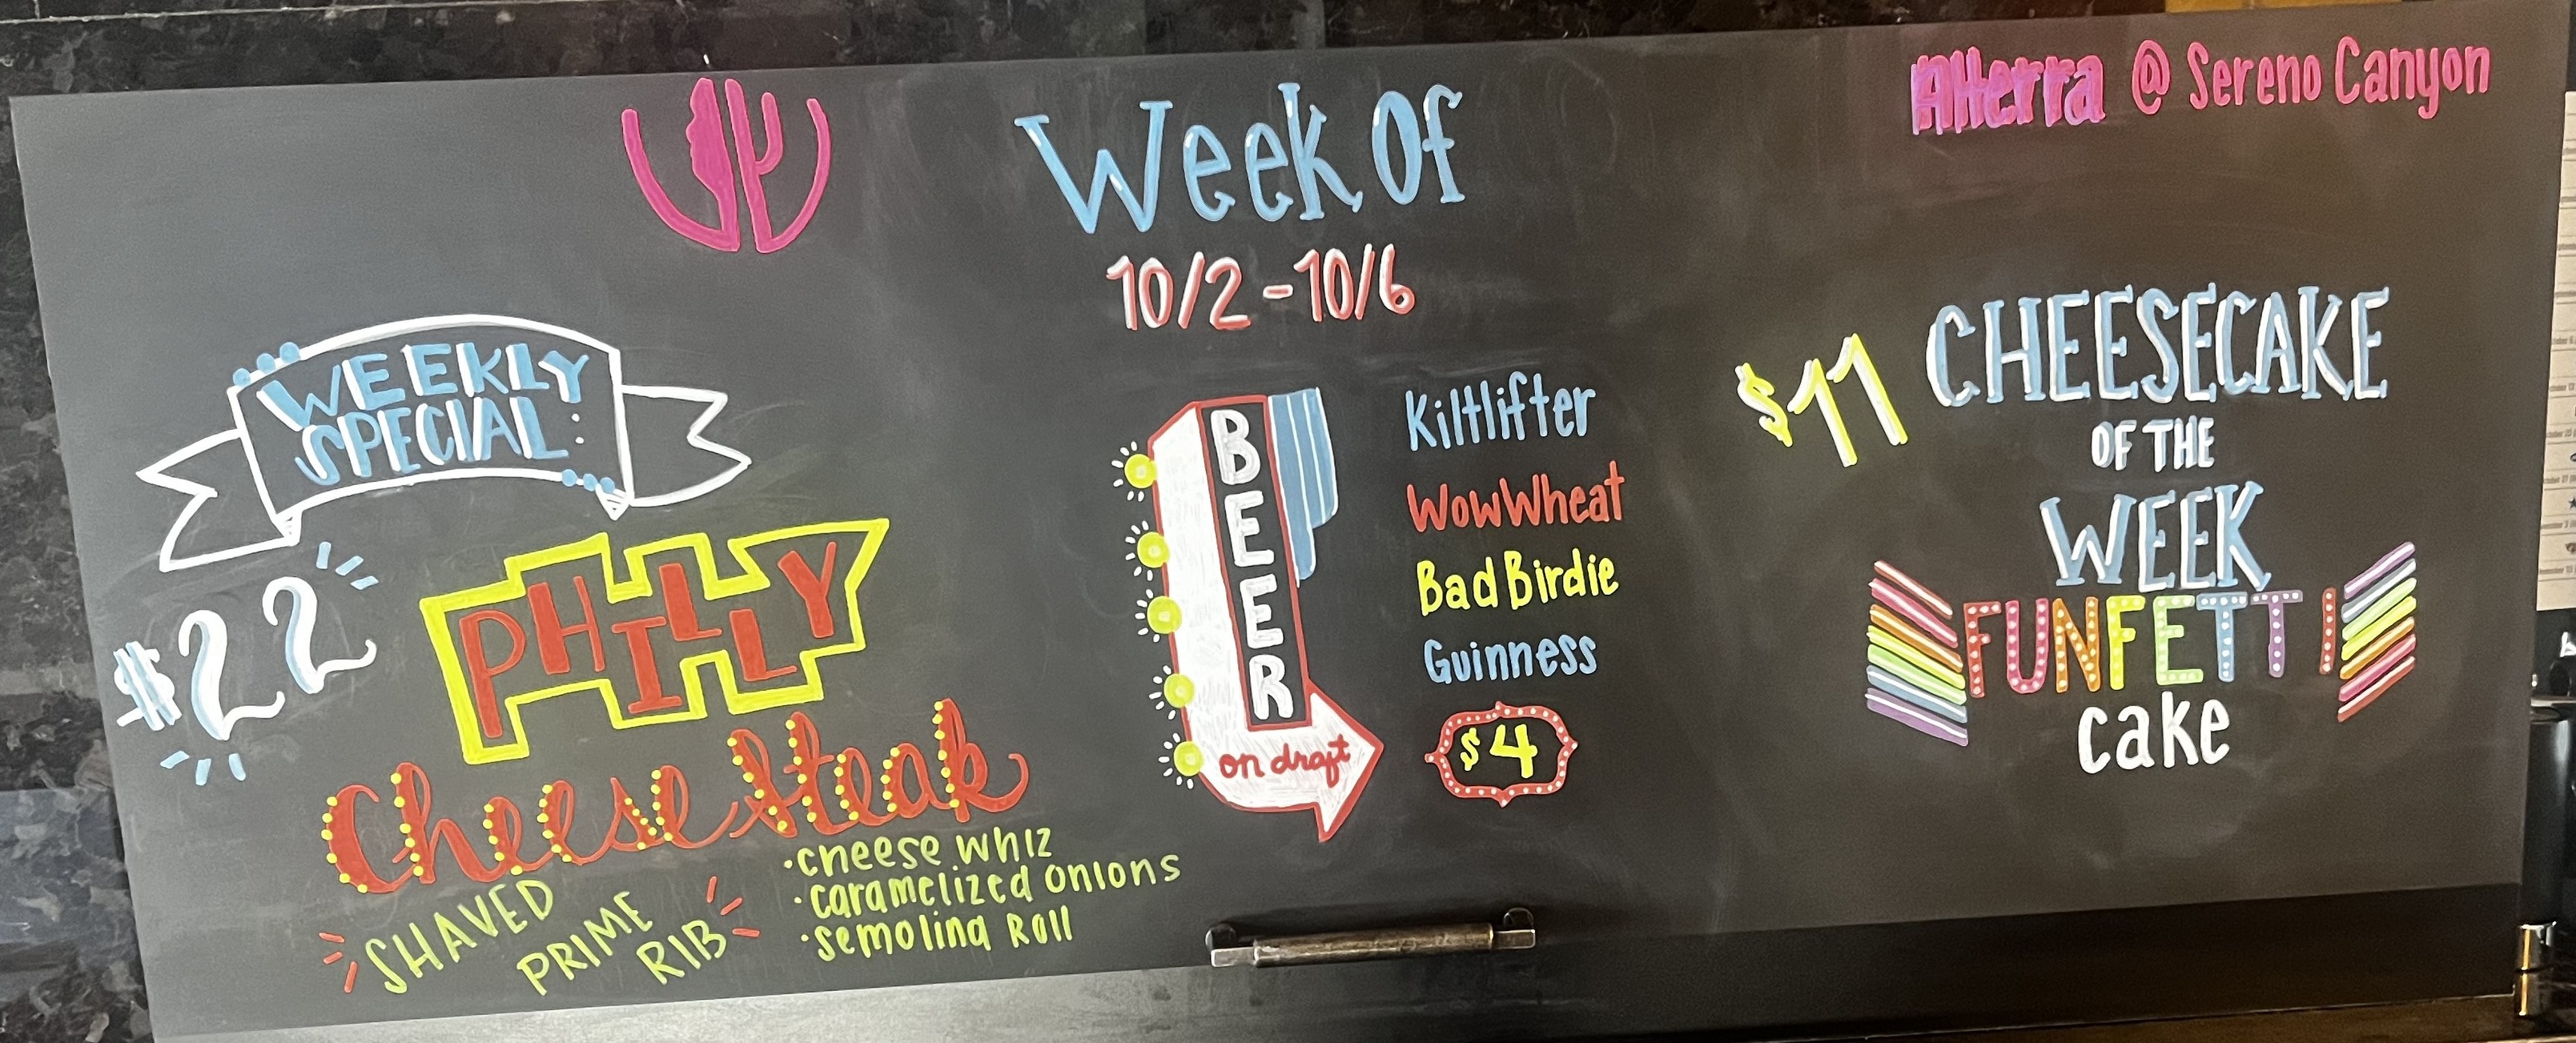 Alterra @ Sereno Canyon
Week Of
10/2 - 10/6
WEEKLY
SPECIAL:
$22
PHILLY
Cheese Steak
SHAVED
PRIME
RIB
• cheese whiz
• caramelized onions
• semolina Roll
BEER
on draft
Kiltlifter
WowWheat
Bad Birdie
Guinness
$4
$11
CHEESECAKE
OF THE
WEEK
FUNFETTI
cake